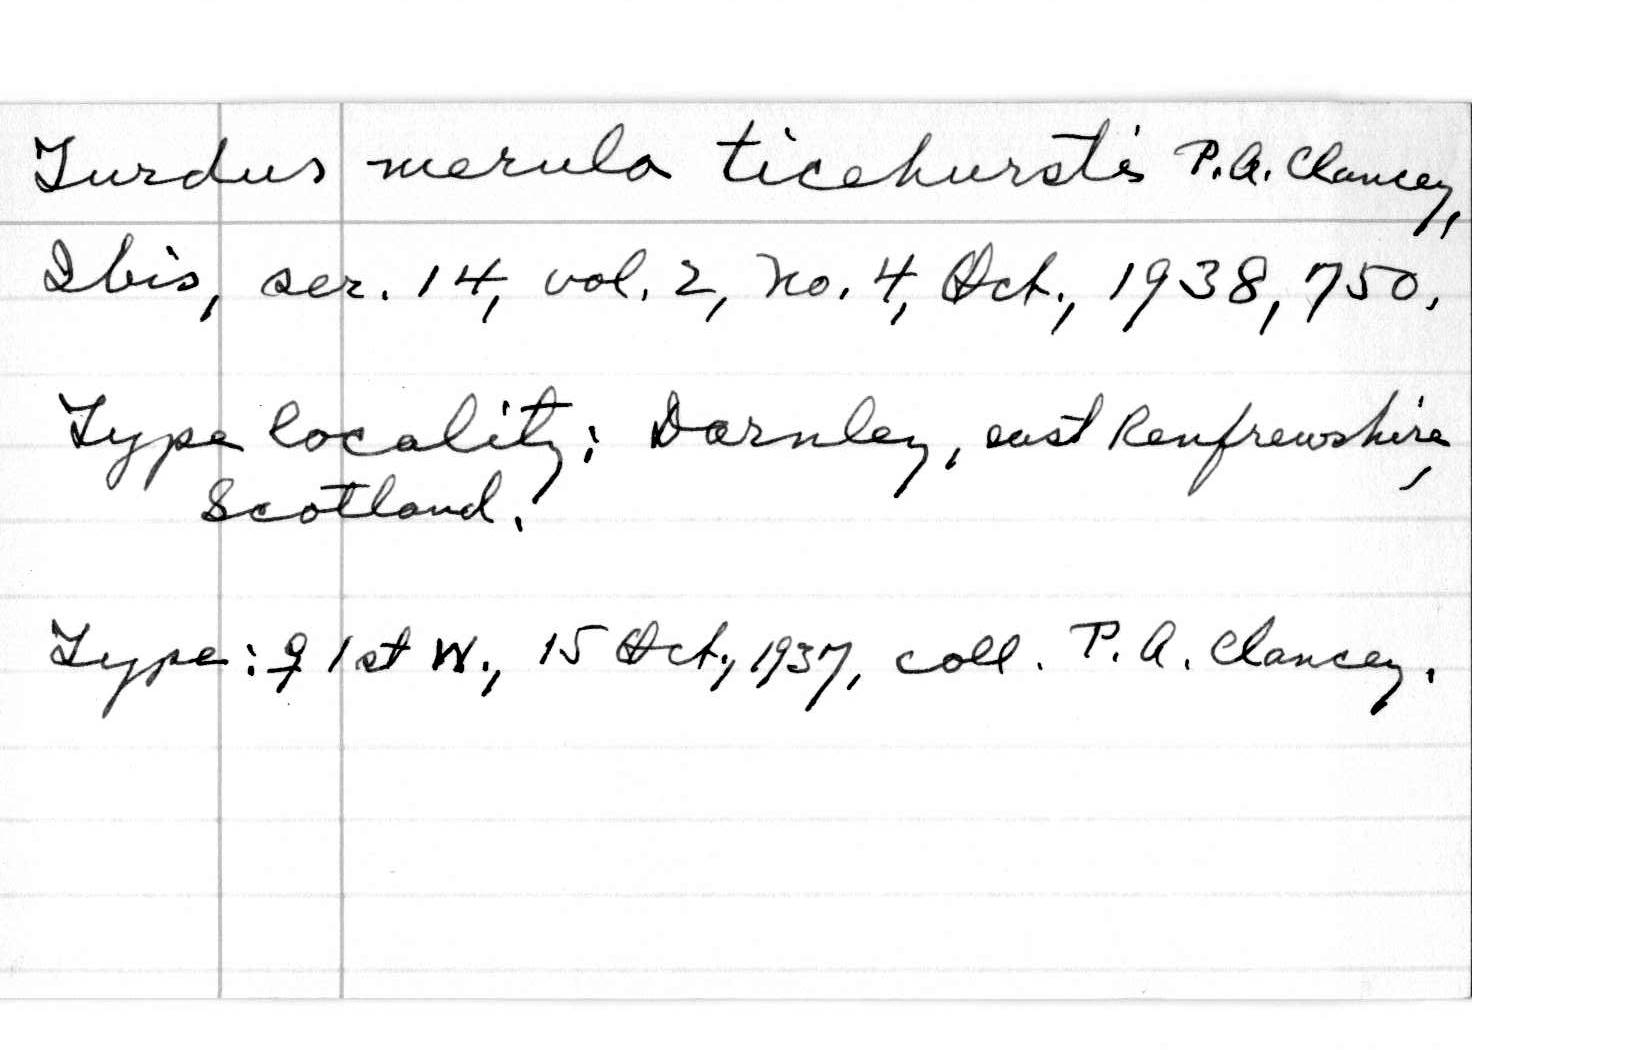 Turdus merula ticehursti P.A. Clancey,
Ibis, ser. 14, vol. 2, no. 4, Oct., 1938, 750.
Type locality: Darnley, east Renfrewshire,
Scotland.
Type: ♀ 1st W., 15 Oct., 1937, coll. P.A. Clancey.